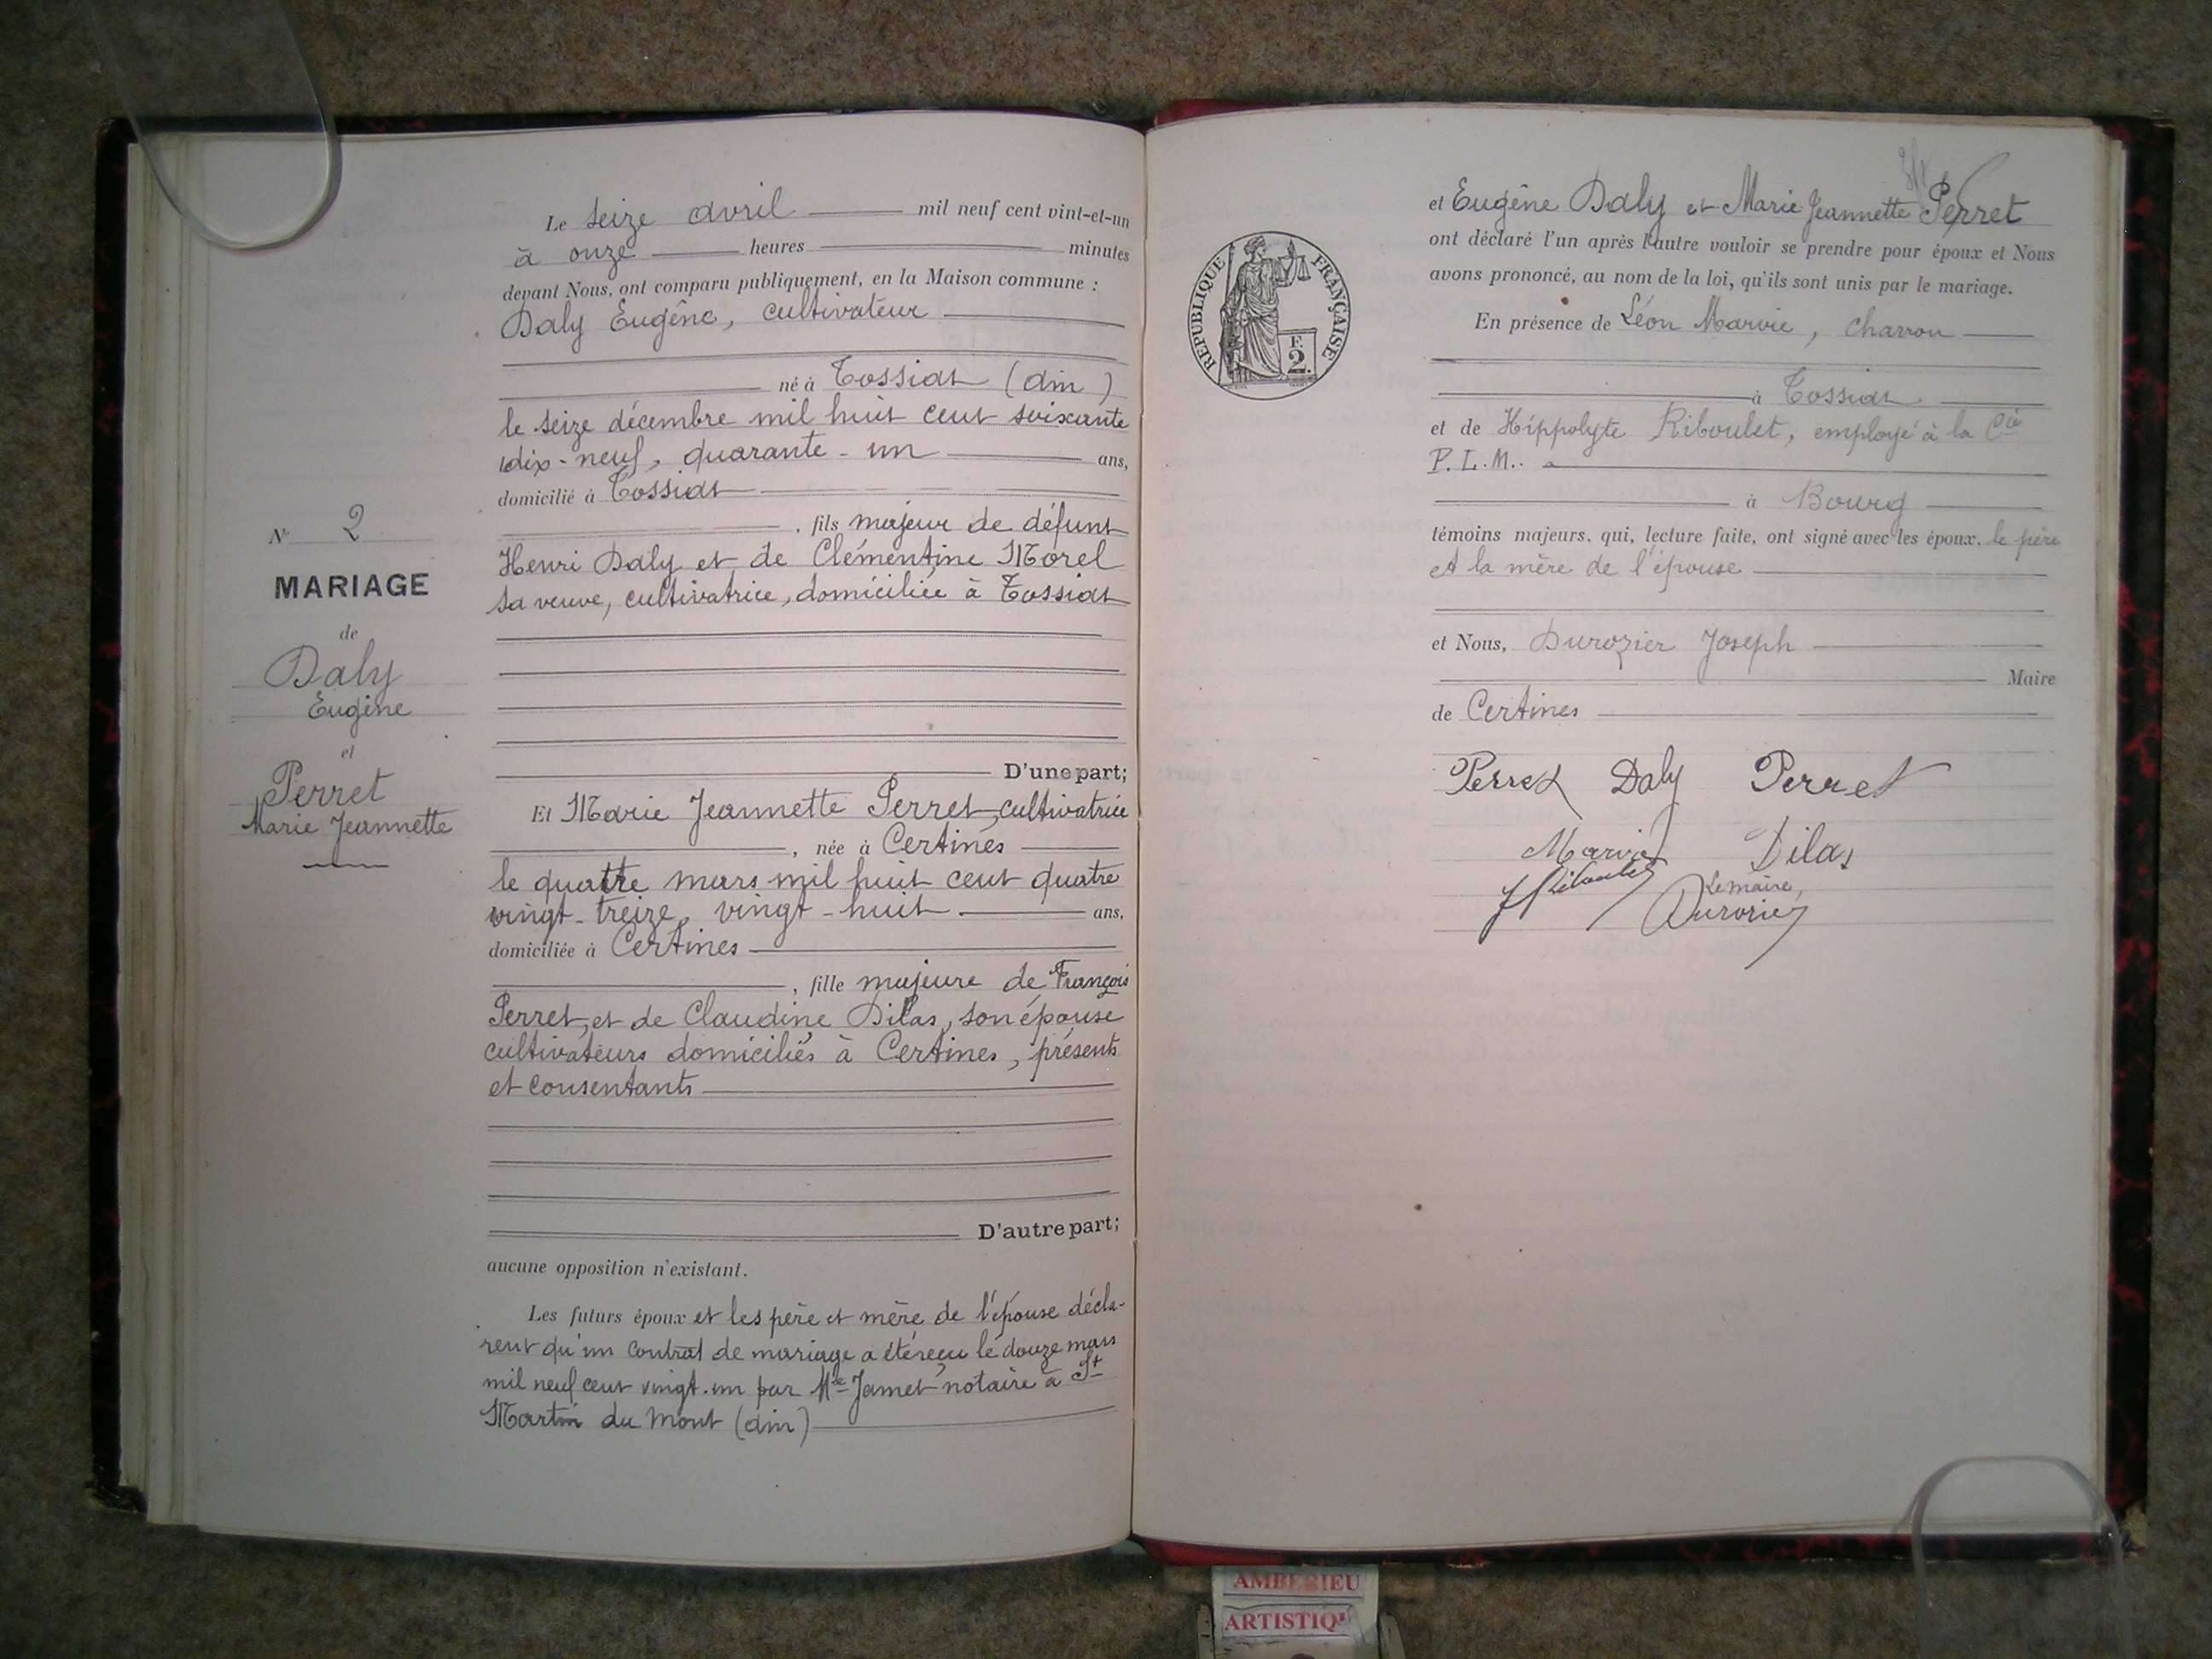 N° 2
MARIAGE
de
Daly
Eugène
et
Perret
Marie Jeannette
Le seize avril mil neuf cent vint-et-un
à onze heures minutes
devant Nous, ont comparu publiquement, en la Maison commune :
Daly Eugène, cultivateur
né à Tossiat (Ain)
le seize décembre mil huit cent soixante
dix-neuf, quarante-un ans,
domicilié à Tossiat
, fils majeur de défunt
Henri Daly et de Clémentine Morel
sa veuve, cultivatrice, domiciliée à Tossiat
D'une part;
Et Marie Jeannette Perret, cultivatrice
, née à Certines
le quatre mars mil huit cent quatre
vingt-treize, vingt-huit ans,
domiciliée à Certines
, fille majeure de François
Perret, et de Claudine Dilas, son épouse
cultivateurs domiciliés à Certines, présents
et consentants
D'autre part;
aucune opposition n'existant.
Les futurs époux et les père et mère de l'épouse décla-
rent qu'un contrat de mariage a été reçu le douze mars
mil neuf cent vingt-un par Me Jamet notaire à St
Martin du Mont (Ain)
RÉPUBLIQUE FRANÇAISE
F.
2.
et Eugène Daly et Marie Jeannette Perret
ont déclaré l'un après l'autre vouloir se prendre pour époux et Nous
avons prononcé, au nom de la loi, qu'ils sont unis par le mariage.
En présence de Léon Marvie, charron
à Tossiat
et de Hippolyte Riboulet, employé à la Cie
P.L.M.
à Bourg
témoins majeurs, qui, lecture faite, ont signé avec les époux, le père
et la mère de l'épouse
et Nous, Durozier Joseph
Maire
de Certines
Perret Daly Perret
Marvie Dilas
Riboulet Le maire,
Durozier
AMBERIEU
ARTISTIQ